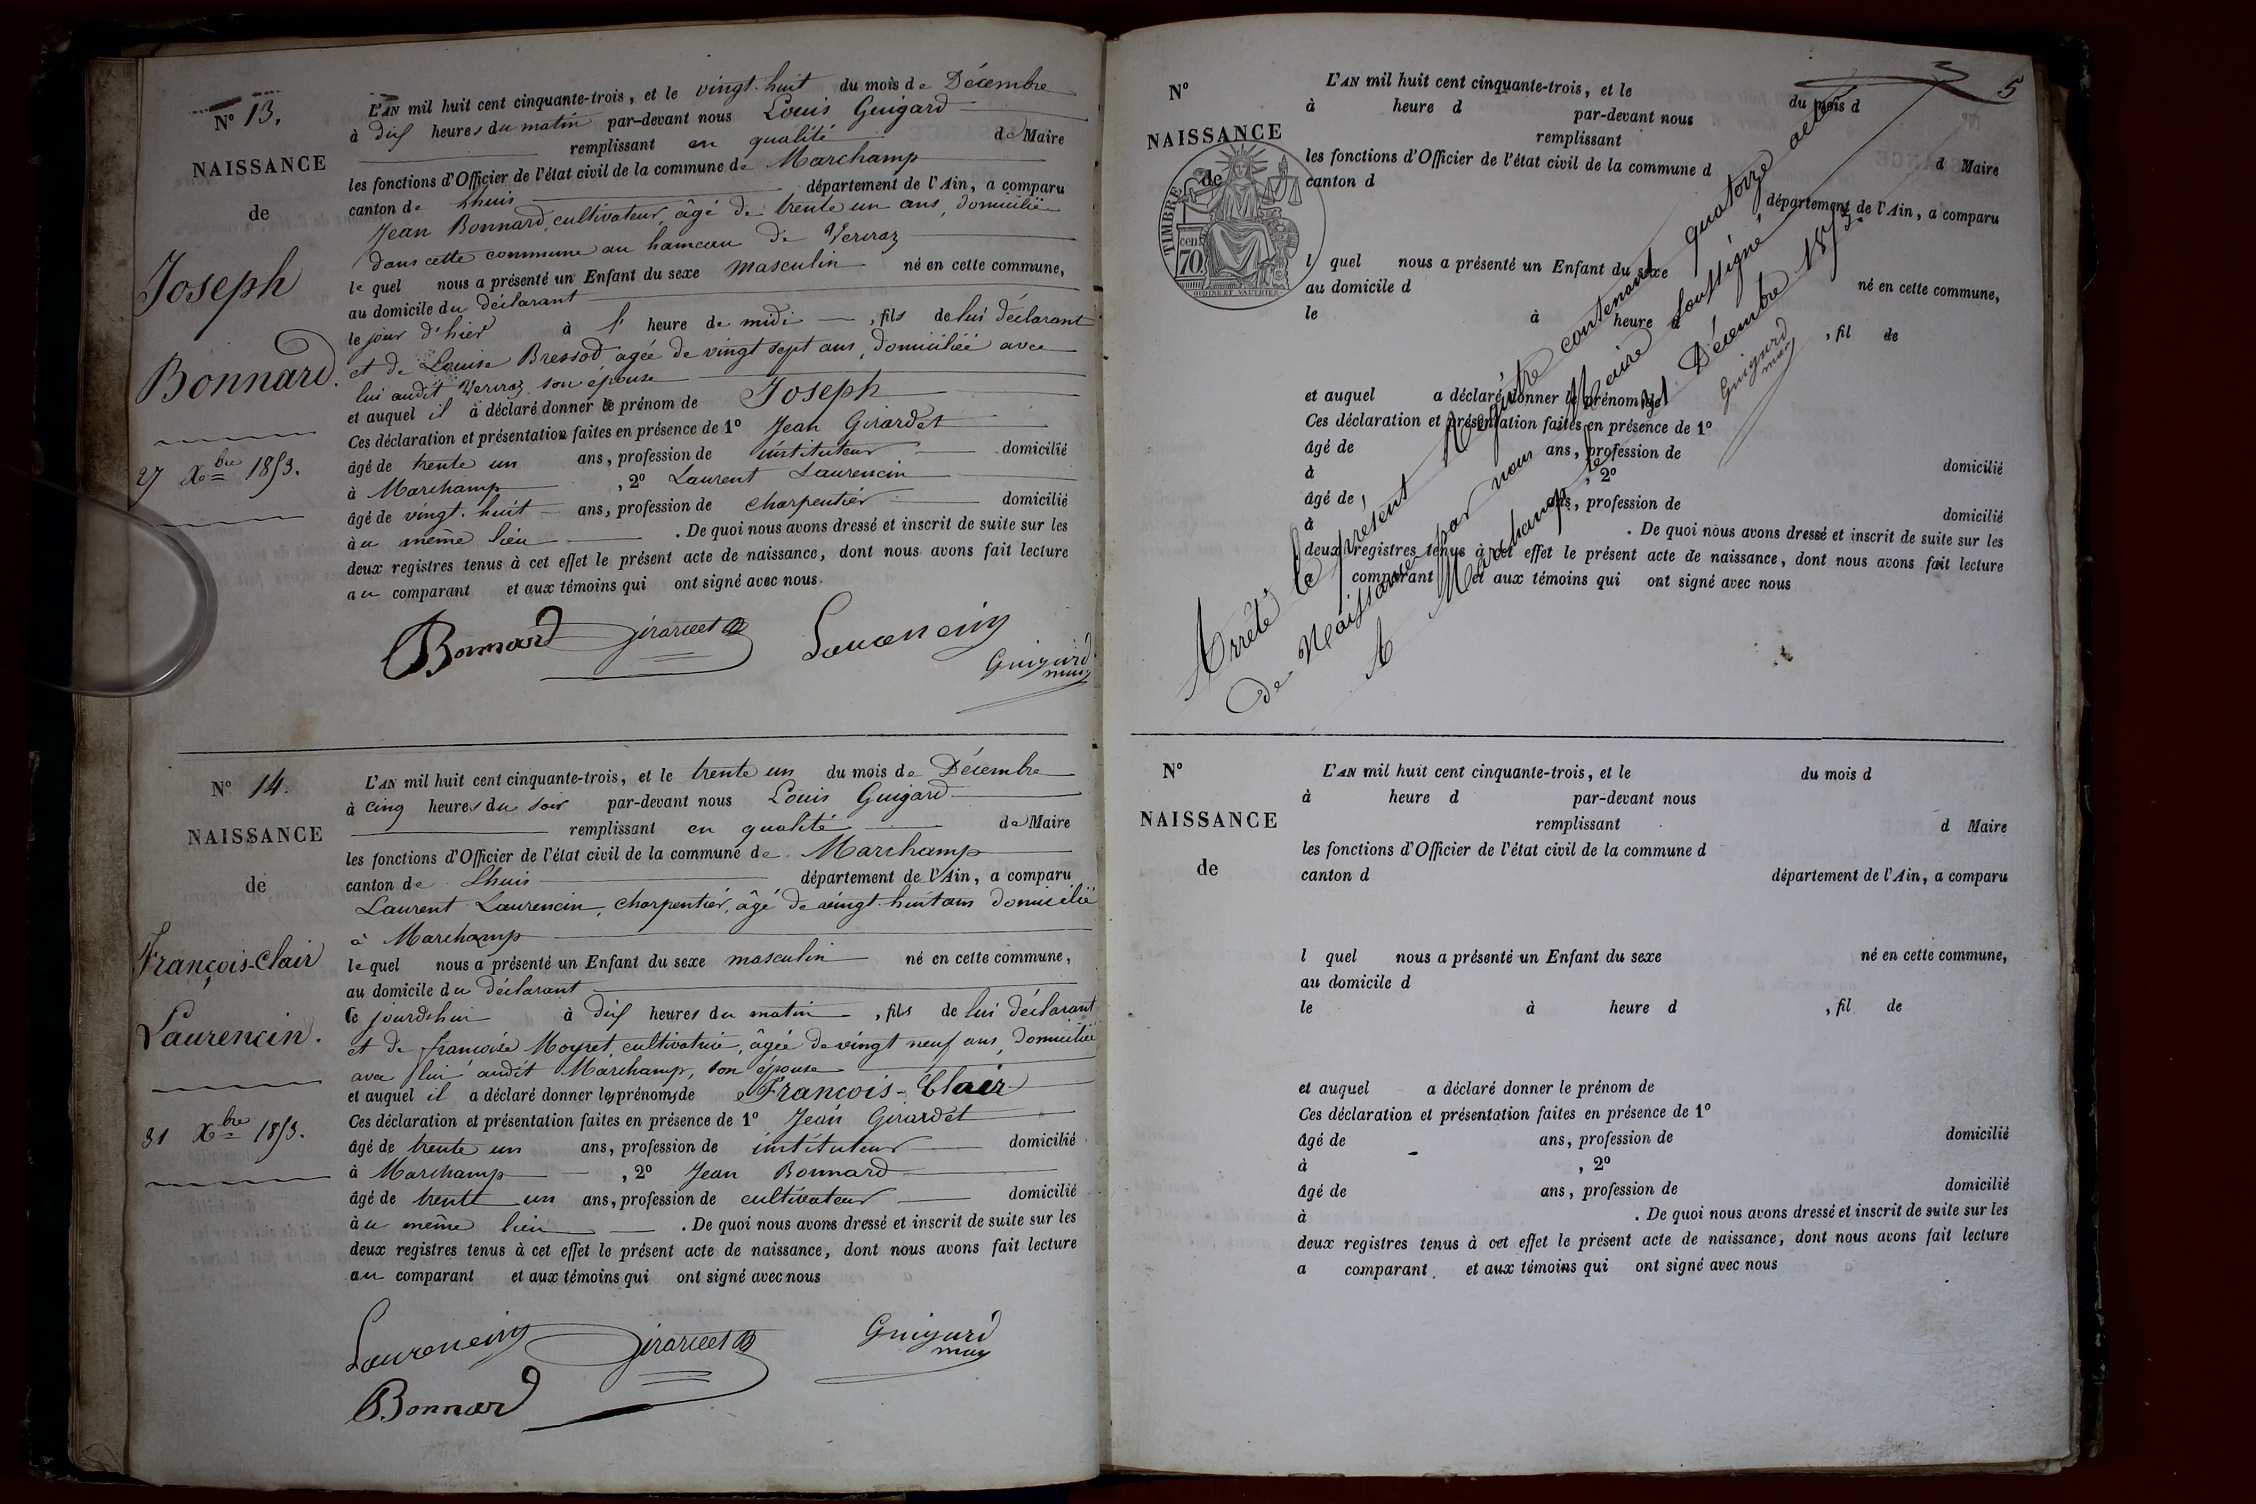 N° 13.
NAISSANCE
de
Joseph
Bonnard.
27 Xbre 1853.
L'AN mil huit cent cinquante-trois, et le vingt-huit du mois de Décembre
à dix heures du matin par-devant nous Louis Guigard
remplissant en qualité de Maire
les fonctions d'Officier de l'état civil de la commune de Marchamp
canton de Lhuis département de l'Ain, a comparu
Jean Bonnard, cultivateur, âgé de trente un ans, domicilié
dans cette commune au hameau de Veriraz
le quel nous a présenté un Enfant du sexe masculin né en cette commune,
au domicile du déclarant
le jour d'hier à l' heure de midi, fils de lui déclarant
et de Louise Bressod agée de vingt sept ans, domiciliée avec
lui audit Veriraz son épouse
et auquel il a déclaré donner le prénom de Joseph
Ces déclaration et présentation faites en présence de 1° Jean Girardet
âgé de trente un ans, profession de instituteur domicilié
à Marchamp, 2° Laurent Laurencin
âgé de vingt-huit ans, profession de charpentier domicilié
au même lieu. De quoi nous avons dressé et inscrit de suite sur les
deux registres tenus à cet effet le présent acte de naissance, dont nous avons fait lecture
au comparant et aux témoins qui ont signé avec nous.
Bonnard Girardet Laurencin
Guigard
N° 14.
NAISSANCE
de
François-Clair
Laurencin.
31 Xbre 1853.
L'AN mil huit cent cinquante-trois, et le trente un du mois de Décembre
à cinq heures du soir par-devant nous Louis Guigard
remplissant en qualité de Maire
les fonctions d'Officier de l'état civil de la commune de Marchamp
canton de Lhuis département de l'Ain, a comparu
Laurent Laurencin, charpentier, âgé de vingt-huit ans domicilié
à Marchamp
le quel nous a présenté un Enfant du sexe masculin né en cette commune,
au domicile du déclarant
ce jourdhui à dix heures du matin, fils de lui déclarant
et de françoise Moyret, cultivatrice, âgée de vingt neuf ans, domiciliée
avec lui audit Marchamp, son épouse
et auquel il a déclaré donner les prénoms de François-Clair
Ces déclaration et présentation faites en présence de 1° Jean Girardet
âgé de trente un ans, profession de instituteur domicilié
à Marchamp, 2° Jean Bonnard
âgé de trente un ans, profession de cultivateur domicilié
au même lieu. De quoi nous avons dressé et inscrit de suite sur les
deux registres tenus à cet effet le présent acte de naissance, dont nous avons fait lecture
au comparant et aux témoins qui ont signé avec nous
Laurencin Girardet Guigard
Bonnard
5
N°
NAISSANCE
de
TIMBRE
70 cent
OUDINE ET VAUTHIER
L'AN mil huit cent cinquante-trois, et le du mois d
à heure d par-devant nous
remplissant d Maire
les fonctions d'Officier de l'état civil de la commune d
canton d département de l'Ain, a comparu
l quel nous a présenté un Enfant du sexe né en cette commune,
au domicile d
le à heure d, fil de
et auquel a déclaré donner le prénom de
Ces déclaration et présentation faites en présence de 1°
âgé de ans, profession de domicilié
à, 2°
âgé de ans, profession de domicilié
à. De quoi nous avons dressé et inscrit de suite sur les
deux registres tenus à cet effet le présent acte de naissance, dont nous avons fait lecture
a comparant et aux témoins qui ont signé avec nous
Arrêté le présent Registre contenant quatorze actes
de Naissance par nous Maire soussigné
A Marchamp le 31 Décembre 1853.
Guigard
N°
NAISSANCE
de
L'AN mil huit cent cinquante-trois, et le du mois d
à heure d par-devant nous
remplissant d Maire
les fonctions d'Officier de l'état civil de la commune d
canton d département de l'Ain, a comparu
l quel nous a présenté un Enfant du sexe né en cette commune,
au domicile d
le à heure d, fil de
et auquel a déclaré donner le prénom de
Ces déclaration et présentation faites en présence de 1°
âgé de ans, profession de domicilié
à, 2°
âgé de ans, profession de domicilié
à. De quoi nous avons dressé et inscrit de suite sur les
deux registres tenus à cet effet le présent acte de naissance, dont nous avons fait lecture
a comparant. et aux témoins qui ont signé avec nous